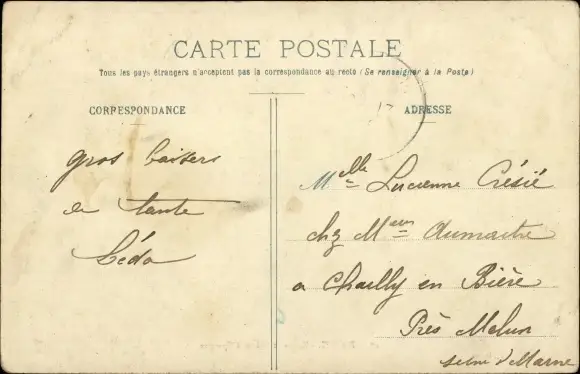 CARTE POSTALE
Tous les pays étrangers n'acceptent pas la correspondance au recto (Se renseigner à la Poste)
CORRESPONDANCE
gros baisers
de tante
Léda
ADRESSE
Melle Lucienne Crésié
chz Mme Aumaitre
a Chailly en Bière
Près Melun
seine & Marne